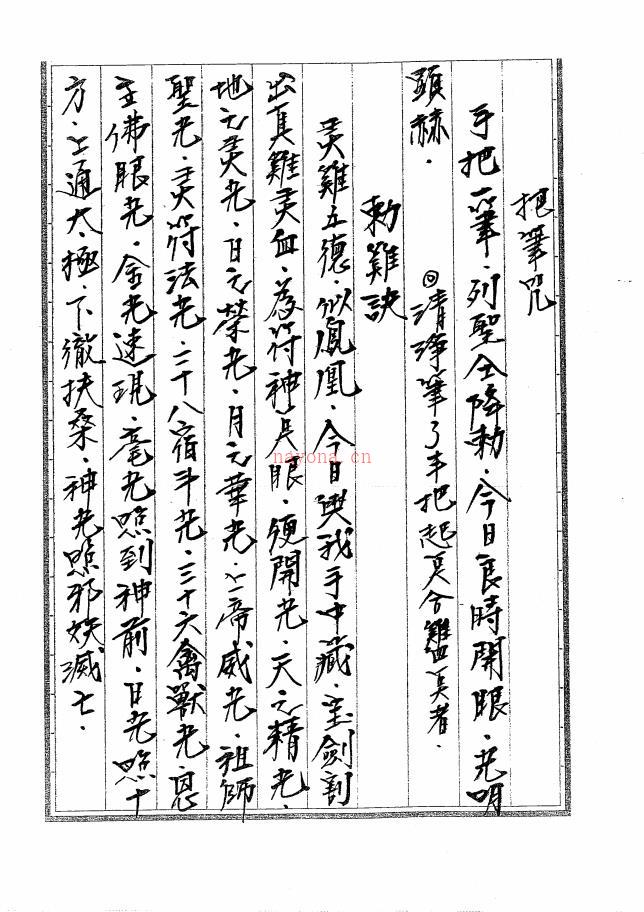 把筆咒
手把一筆．列聖全降勅．今日良時開眼．光明
顕赫． ◎清淨筆了手把起 合雞血 者．
勅雞訣
灵雞五德．似鳳凰．今日與我手中藏．宝劍割
出真雞灵血．為符神 眼．便開光．天之精光．
地之灵光．日之榮光．月之華光．上帝威光．祖師
聖光．灵符法光．二十八宿斗光．三十六禽獸光．恩
主佛眼光．金光速現．毫光照到神前．日光照十
方．上通太極．下徹扶桑．神光照邪妖滅亡．
nayona.cn